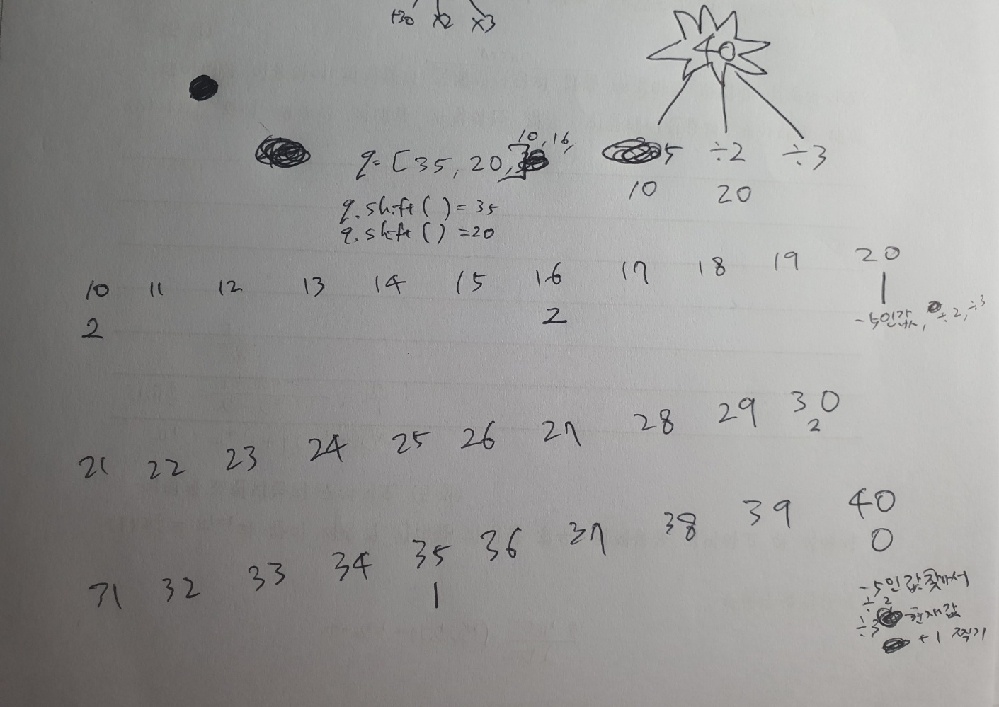 +30 x2 x3
40
10, 16,
q= [35, 20, 5 ÷2 ÷3
10 20
q.shift() = 35
q.shift() = 20
10 11 12 13 14 15 16 17 18 19 20
2 2 1
-5인값, ÷2, ÷3
21 22 23 24 25 26 27 28 29 30
2
31 32 33 34 35 36 37 38 39 40
1 0
-5인값찾아서
÷2
÷3 현재값
+1 찍기